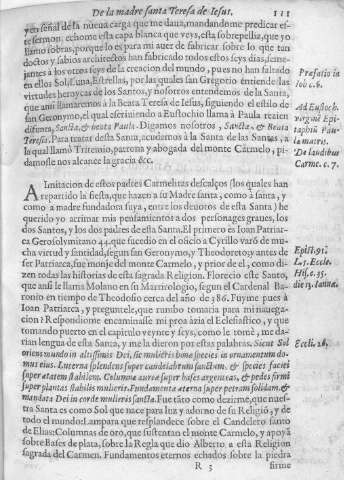 De la madre santa Teresa de Iesus. 111
y en señal de la nueua carga que me daua, mandandome predicar es-
te sermon, echome esta capa blanca que veys, esta sobrepellia, que yo
llamo sobras, porque lo es para mi auer de fabricar sobre lo que tan
doctos y sabios architectos han fabricado todos estos seys dias, seme-
jantes à los otros seys de la creacion del mundo, pues no han faltado
en ellos Sol, Luna, Estrellas, por las quales san Gregorio entiende las
virtudes heroycas de los Santos, y nosotros entendemos de la Santa,
que ansi llamaremos à la Beata Teresa de Iesus, siguiendo el estilo de
san Geronymo, el qual escriuiendo à Eustochio llama à Paula rezien
difunta, Sancta, & beata Paula. Digamos nosotros, Sancta, & Beata
Teresia. Para tratar desta Santa, acudamos à la Santa de las Santas, a
la qual llamò Tritemio, patrona y abogada del monte Carmelo, pi-
damosle nos alcance la gracia &c.
Prefatio in
Iob c. 6.
Ad Eustoch.
virginē Epi-
taphiũ Pau-
læ matris.
De laudibus
Carme. c. 7.
A Imitacion de estos padres Carmelitas descalços (los quales han
repartido la fiesta, que hazen a su Madre santa, como à santa, y
como a madre fundadora suya, entre los deuotos de esta Santa) he
querido yo arrimar mis pensamientos a dos personages graues, los
dos Santos, y los dos padres de esta Santa. El primero es Ioan Patriar-
ca Gerosolymitano 44. que sucedio en el oficio a Cyrillo varō de mu-
cha virtud y santidad, segun san Geronymo, y Theodoreto: y antes de
ser Patriarca, fue monje del monte Carmelo, y prior de el, como di-
zen todas las historias de esta sagrada Religion. Florecio este Santo,
que ansi le llama Molano en su Martirologio, segun el Cardenal Ba-
ronio en tiempo de Theodosio cerca del año de 386. Fuyme pues à
Ioan Patriarca, y preguntele, que rumbo tomaria para mi nauega-
cion? Respondiome encaminasse mi proa azia el Eclesiastico, y que
tomando puerto en el capitulo veynte y seys, como le tomè, me da-
rian lengua de esta Santa, y me la dieron por estas palabras. Sicut Sol
oriens mundo in altissimis Dei, sic mulieris bonæ species in ornamentum do-
mus eius. Lucerna splendens super candelabrum sanctum, & species faciei
super ætatem stabilem. Columnæ aureæ super bases argenteas, & pedes firmi
super plantas stabilis mulieris. Fundamenta æterna supra petram solidam, &
mandata Dei in corde mulieris sanctæ. Fue tāto como dezirme, que nuestra
Santa es como Sol que nace para luz y adorno de su Religiō, y de
todo el mundo: Lampara que resplandece sobre el Candelero santo
de Elias: Columnas de oro, que sustentan el monte Carmelo, y apoyā
sobre Bases de plata, sobre la Regla que dio Alberto a esta Religion
sagrada del Carmen. Fundamentos eternos echados sobre la piedra
Epist. 91.
L. 5. Eccle.
Hist. c. 35.
Eccli. 26.
R 3 firme